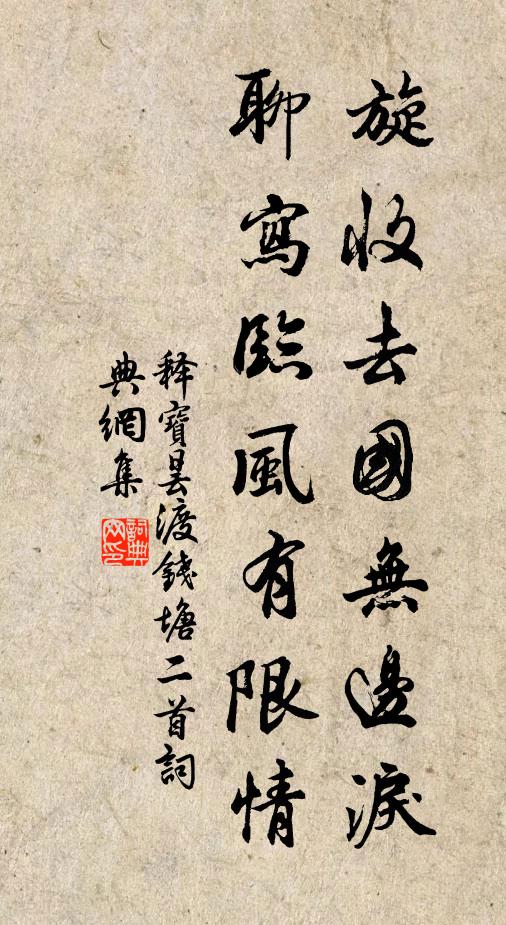 旋收去國無邊淚
聊寫臨風有限情
释寶曇渡錢塘二首詞
典網集
詞典網印